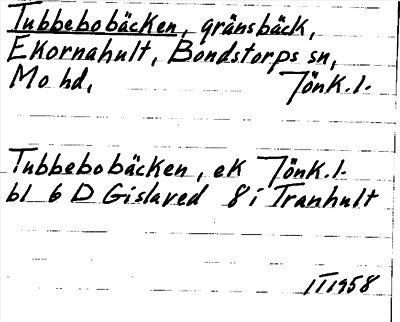 Tubbebobäcken, gränsbäck,
Ekornahult, Bondstorps sn,
Mo hd, Jönk.l.
Tubbebobäcken, ek Jönk.l.
bl 6 D Gislaved 8 i Tranhult
III 1958